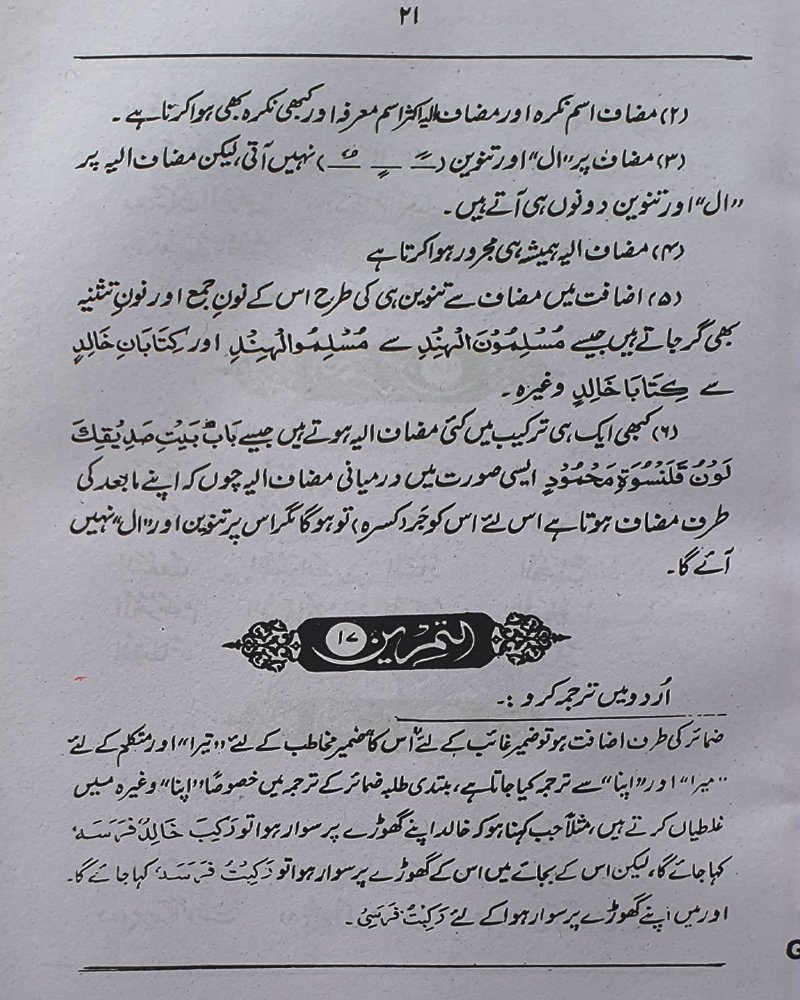 ۲۱
(۲) مضاف اسم نکرہ اور مضاف الیہ اکثر اسم معرفہ اور کبھی نکرہ بھی ہوا کرتا ہے ۔
(۳) مضاف پر "ال" اور تنوین (ـًـ ـٍـ ـٌـ) نہیں آتی لیکن مضاف الیہ پر
"ال" اور تنوین دونوں ہی آتے ہیں۔
(۴) مضاف الیہ ہمیشہ ہی مجرور ہوا کرتا ہے
(۵) اضافت میں مضاف سے تنوین ہی کی طرح اس کے نونِ جمع اور نونِ تثنیہ
بھی گر جاتے ہیں جیسے مُسْلِمُوْنَ الْهِنْدِ سے مُسْلِمُو الْهِنْدِ اور كِتَابَانِ خَالِدٍ
سے كِتَابَا خَالِدٍ وغیرہ ۔
(۶) کبھی ایک ہی ترکیب میں کئی مضاف الیہ ہوتے ہیں جیسے بَابُ بَيْتِ صَدِيْقِكَ
لَوْنُ قَلَنْسُوَةِ مَحْمُوْدٍ ایسی صورت میں درمیانی مضاف الیہ چوں کہ اپنے مابعد کی
طرف مضاف ہوتا ہے اس لئے اس کو جَر (کسرہ) تو ہوگا مگر اس پر تنوین اور "ال" نہیں
آئے گا۔
التمرین ۱۷
اُردو میں ترجمہ کرو :۔
ضمائر کی طرف اضافت ہو تو ضمیر غائب کے لئے "اس کا" ضمیر مخاطب کے لئے "تیرا" اور متکلم کے لئے
"میرا" اور "اپنا" سے ترجمہ کیا جاتا ہے، مبتدی طلبہ ضمائر کے ترجمہ میں خصوصاً "اپنا" وغیرہ میں
غلطیاں کرتے ہیں، مثلاً جب کہنا ہو کہ خالد اپنے گھوڑے پر سوار ہوا تو رَكِبَ خَالِدٌ فَرَسَهٗ
کہا جائے گا، لیکن اس کے بجائے میں اس کے گھوڑے پر سوار ہوا تو رَكِبْتُ فَرَسَهٗ کہا جائے گا۔
اور میں اپنے گھوڑے پر سوار ہوا کے لئے رَكِبْتُ فَرَسِيْ ۔
G